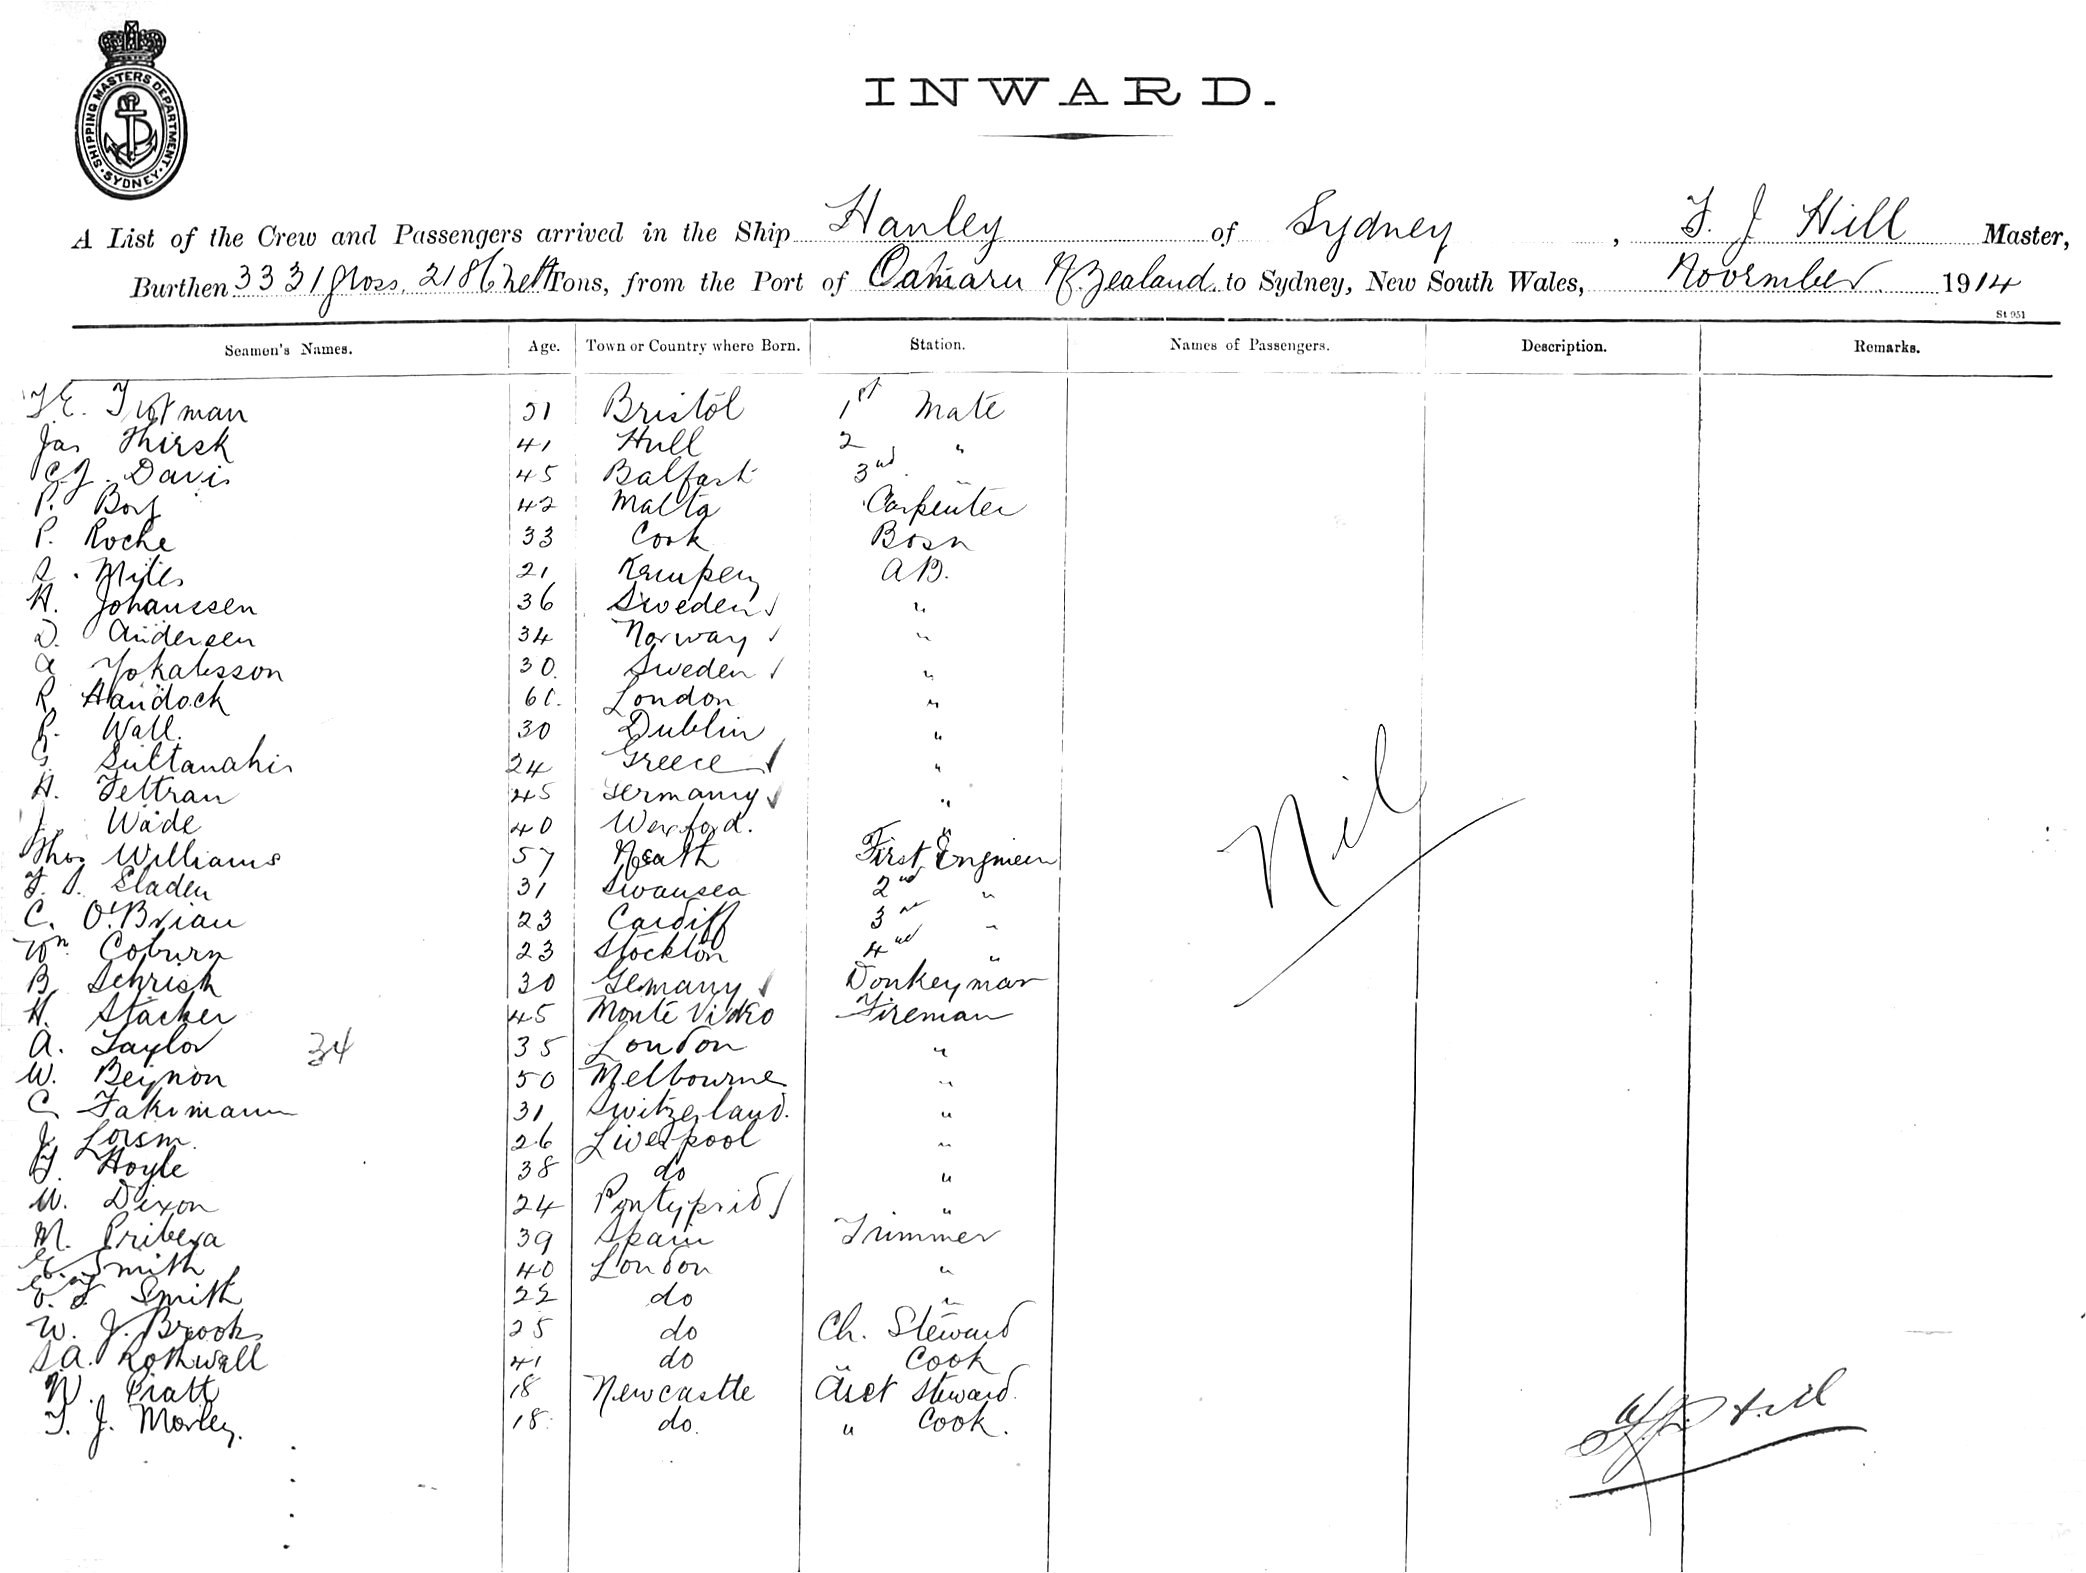 SHIPPING MASTERS DEPARTMENT · SYDNEY ·
INWARD.
A List of the Crew and Passengers arrived in the Ship Hanley of Sydney, F. J Hill Master,
Burthen 3331 gross. 2186 nett Tons, from the Port of Oamaru N. Zealand. to Sydney, New South Wales, November 1914
St 951
Seamen's Names. Age. Town or Country where Born. Station. Names of Passengers. Description. Remarks.
T. E. Trotman 51 Bristol 1st Mate
Jas Thirsk 41 Hull 2 "
C. J. Davis 45 Balfast 3rd "
P. Borg 42 Malta Carpenter
P. Roche 33 Cork Bosn
S. Miles 21 Kempsey AB.
H. Johanssen 36 Sweden "
D. Andersen 34 Norway "
A 30. Sweden "
R. Handock London "
P. Wall. 30 Dublin "
G. Sultanahis 24 Greece "
H. Feltran 45 Germany "
J. Wade 40 Wexford. "
Thos Williams 57 Neath First Engineer
F. J. Sladen 31 Swansea 2nd "
C. O'Brian 23 Cardiff 3rd "
Wm. Coburn 23 Stockton 4 "
B. Sehrish 30 Gemany Donkeyman
H. Stacker 45 Monte Video Fireman
A. Taylor 34 35 London "
W. Beynon 50 Melbourne "
C. 31 Switzerland. "
J. 26 Liverpool "
J. Hoyle 38 do "
W. Dixon 24 Pontyprid "
M. Pribera 39 Spain Trimmer
E. Smith 40 London "
E. J. Smith 22 do "
W. J. Brooks 25 do Ch. Steward
S. A. Rothwell 41 do " Cook
N. Piatt 18 Newcastle Asst Steward.
T. J. Morley. 18. do. " Cook.
Nil
F. J. Hill